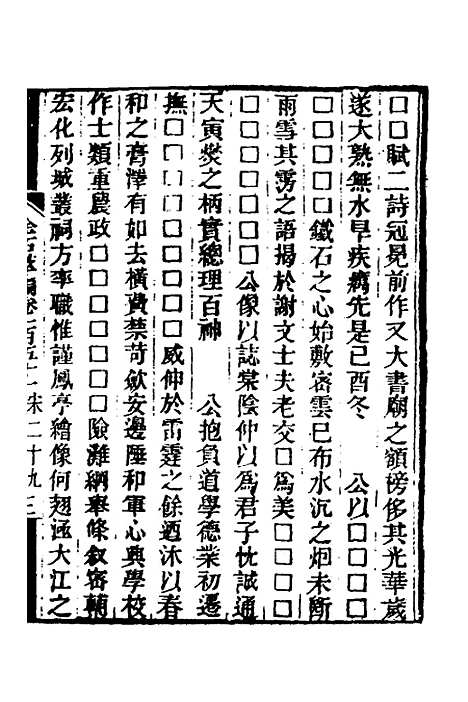 □□賦二詩冠冕前作又大書廟之額牓侈其光華歲
遂大熟無水旱疾癘先是己酉冬　公以□□□□
□□□□□鐵石之心始敷密雲巳布水沉之炬未斷
雨雪其雱之語揭於謝文士夫老交□□爲美□□□
□□□□□□□公像以誌棠陰仲以爲君子忱誠通
天寅熒之柄實總理百神　公抱負道學德業初遷
撫□□□□□□威仲於雷霆之餘迺沐以春
和之膏澤有如去橫費禁苛歛安邊陲和軍心興學校
作士類重農政□□□□險灘綱舉條敘密輔
宏化列城叢祠方率職惟謹鳳亭繪像何翅極大江之
金石萃編卷一百五十二宋二十九